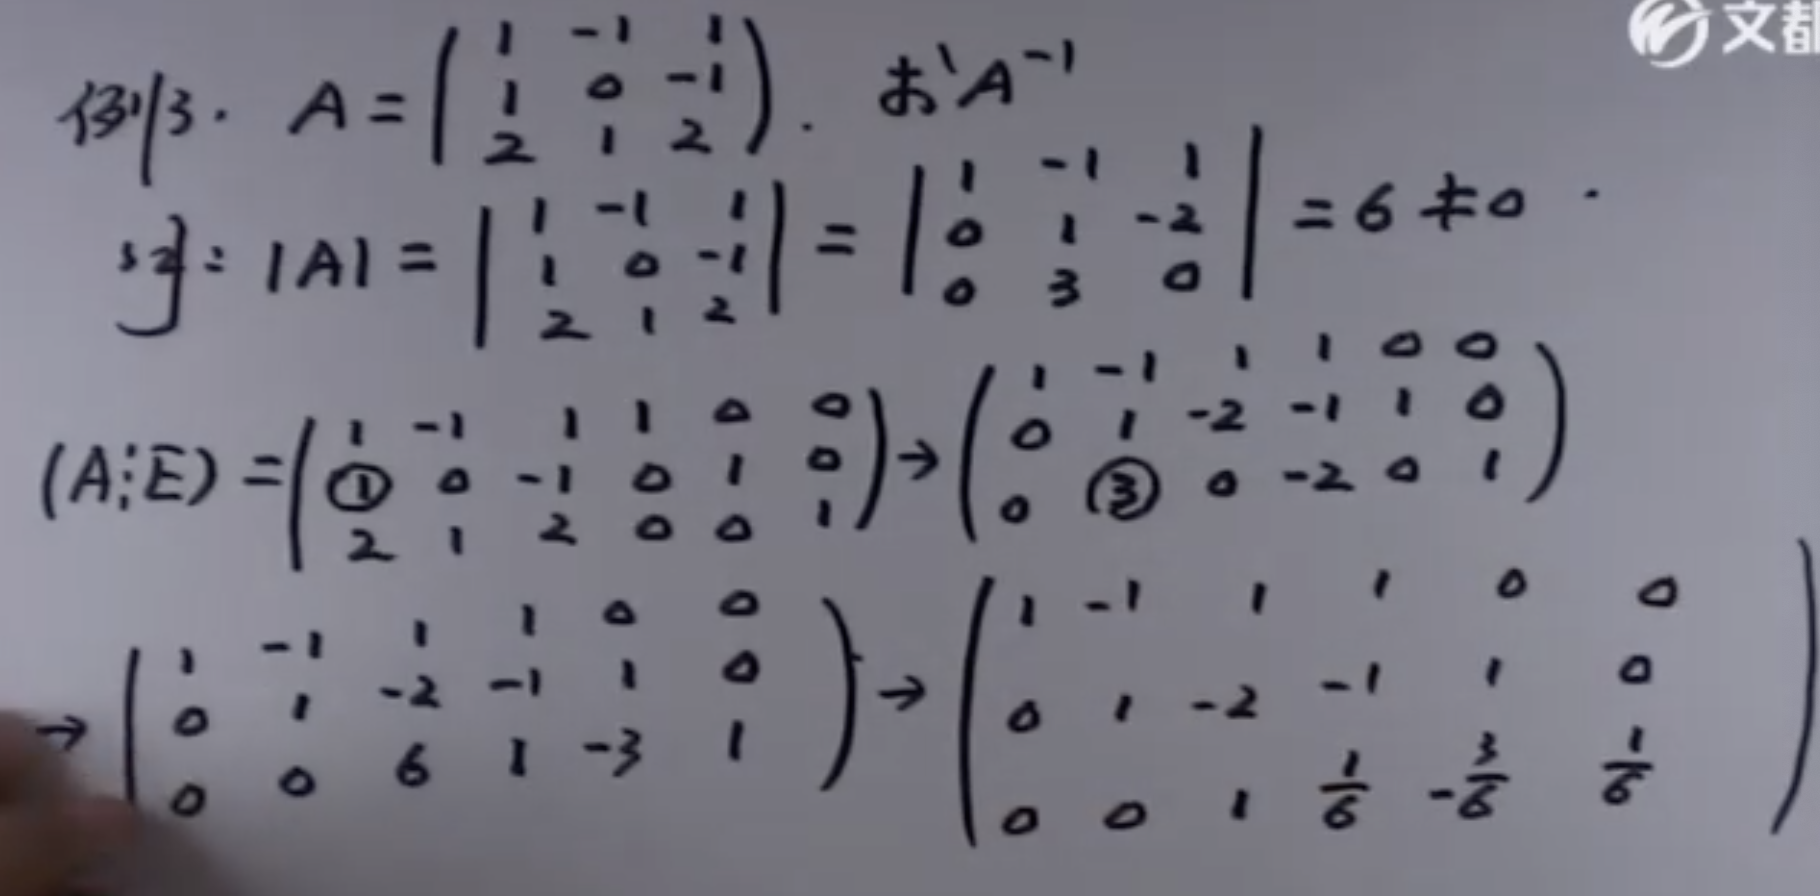 文都
例3. A = ( 1 -1 1 ; 1 0 -1 ; 2 1 2 ). 求 A⁻¹
证: |A| = | 1 -1 1 ; 1 0 -1 ; 2 1 2 | = | 1 -1 1 ; 0 1 -2 ; 0 3 0 | = 6 ≠ 0.
(A⋮E) = ( 1 -1 1 1 0 0 ; ① 0 -1 0 1 0 ; 2 1 2 0 0 1 ) → ( 1 -1 1 1 0 0 ; 0 1 -2 -1 1 0 ; 0 ③ 0 -2 0 1 )
→ ( 1 -1 1 1 0 0 ; 0 1 -2 -1 1 0 ; 0 0 6 1 -3 1 ) → ( 1 -1 1 1 0 0 ; 0 1 -2 -1 1 0 ; 0 0 1 1/6 -3/6 1/6 )